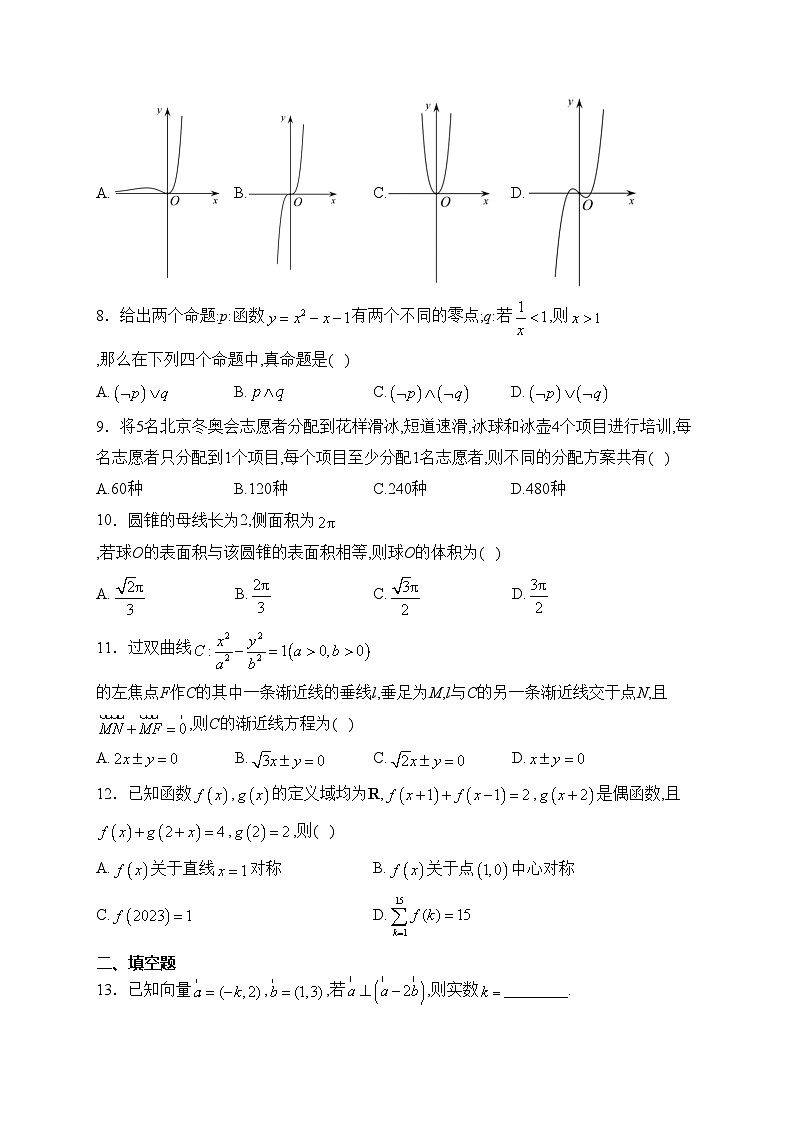 A. y O x B. y O x C. y O x D. y O x
8．给出两个命题:p:函数 y = x² − x − 1 有两个不同的零点;q:若 1/x < 1,则 x > 1
,那么在下列四个命题中,真命题是( )
A. (¬p)∨q B. p∧q C. (¬p)∧(¬q) D. (¬p)∨(¬q)
9．将5名北京冬奥会志愿者分配到花样滑冰,短道速滑,冰球和冰壶4个项目进行培训,每
名志愿者只分配到1个项目,每个项目至少分配1名志愿者,则不同的分配方案共有( )
A.60种 B.120种 C.240种 D.480种
10．圆锥的母线长为2,侧面积为 2π
,若球O的表面积与该圆锥的表面积相等,则球O的体积为( )
A. √2π/3 B. 2π/3 C. √3π/2 D. 3π/2
11．过双曲线 C : x²/a² − y²/b² = 1(a > 0, b > 0)
的左焦点F作C的其中一条渐近线的垂线l,垂足为M,l与C的另一条渐近线交于点N,且
MN + MF = 0 ,则C的渐近线方程为( )
A. 2x ± y = 0 B. √3x ± y = 0 C. √2x ± y = 0 D. x ± y = 0
12．已知函数 f(x) , g(x) 的定义域均为R, f(x+1) + f(x−1) = 2 , g(x+2) 是偶函数,且
f(x) + g(2+x) = 4 , g(2) = 2 ,则( )
A. f(x) 关于直线 x = 1 对称 B. f(x) 关于点 (1,0) 中心对称
C. f(2023) = 1 D. ∑_{k=1}^{15} f(k) = 15
二、填空题
13．已知向量 a = (−k, 2) , b = (1,3) ,若 a ⊥ (a − 2b) ,则实数 k = ________.